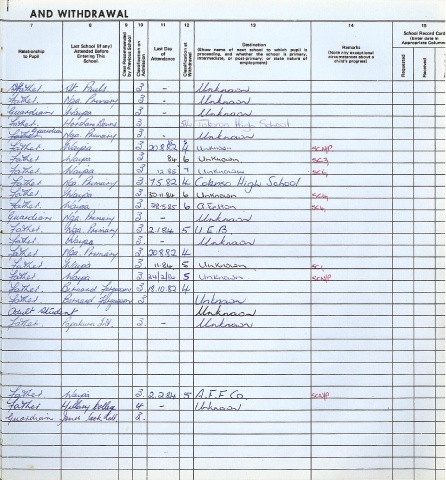 AND WITHDRAWAL
7 8 9 10 11 12 13 14 15
Relationship to Pupil
Last School (if any) Attended Before Entering This School.
Class Recommended by Previous School
Classification on Admission
Last Day of Attendance
Classification at Withdrawal
Destination
(Show name of next school to which pupil is proceeding, and whether the school is primary, intermediate, or post-primary; or state nature of employment)
Remarks
(Note any exceptional circumstances about a child's progress)
School Record Card (Enter date in Appropriate Column
Requested
Received
Father St Pauls 3 - Unknown
Father. Nga. Primary 3. - Unknown
Guardian Waipa 3. - Unknown
Father. 3. High School
Father Nga. Primary 3. - Unknown
Father. Waipa 3. 20.8.82 4 Unknown
Father Waipa 3. 84 6 Unknown
Father Waipa 3. 12.85 7 Unknown
Father. Nga. Primary 3. 7.5.82 4 Colenso High School
Father Waipa 3. 30.11.84 6 Unknown
Father. Waipa 3. 28.5.85 6
Guardian Nga. Primary 3. - Unknown
Father Nga. Primary 3. 2.1.84 5 U.E.B.
Father. Waipa 3. - Unknown
Father Nga. Primary 3. 20.8.82 4
Father Waipa 3. 11.84 5 Unknown
Father Waipa 3. 24/2/84 5 Unknown
Father. Bernard Fergusson 3. 19.10.82 4
Father Bernard Fergusson 3. Unknown
Adult Student Unknown
Father 3. - Unknown
Father. Waipa 3. 2.2.84 5 A.F.F.Co.
Father Hillary College 4 - Unknown
Guardian James Cook 3.